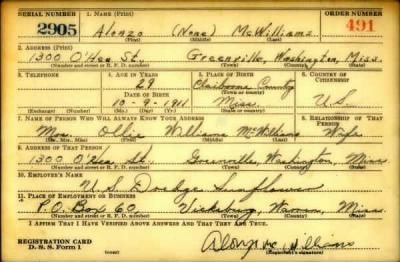 SERIAL NUMBER 1. NAME (Print) ORDER NUMBER
2905 Alonzo (None) McWilliams 491
(First) (Middle) (Last)
2. ADDRESS (Print)
1300 O'Hea St., Greenville, Washington, Miss.
(Number and street or R. F. D. number) (Town) (County) (State)
3. TELEPHONE 4. AGE IN YEARS 5. PLACE OF BIRTH 6. COUNTRY OF CITIZENSHIP
29 Claiborne County
DATE OF BIRTH (Town or county)
10-9-1911 Miss. U.S.
(Exchange) (Number) (Mo.) (Day) (Yr.) (State or country)
7. NAME OF PERSON WHO WILL ALWAYS KNOW YOUR ADDRESS 8. RELATIONSHIP OF THAT PERSON
Mrs. Ollie Williams McWilliams Wife
(Mr., Mrs., Miss) (First) (Middle) (Last)
9. ADDRESS OF THAT PERSON
1300 O'Hea St. Greenville, Washington, Miss
(Number and street or R. F. D. number) (Town) (County) (State)
10. EMPLOYER'S NAME
U.S. Dredge Sunflower
11. PLACE OF EMPLOYMENT OR BUSINESS
P.O. Box 60 Vicksburg, Warren, Miss.
(Number and street or R. F. D. number) (Town) (County) (State)
I AFFIRM THAT I HAVE VERIFIED ABOVE ANSWERS AND THAT THEY ARE TRUE.
REGISTRATION CARD
D. S. S. Form 1 (over) (Registrant's signature)